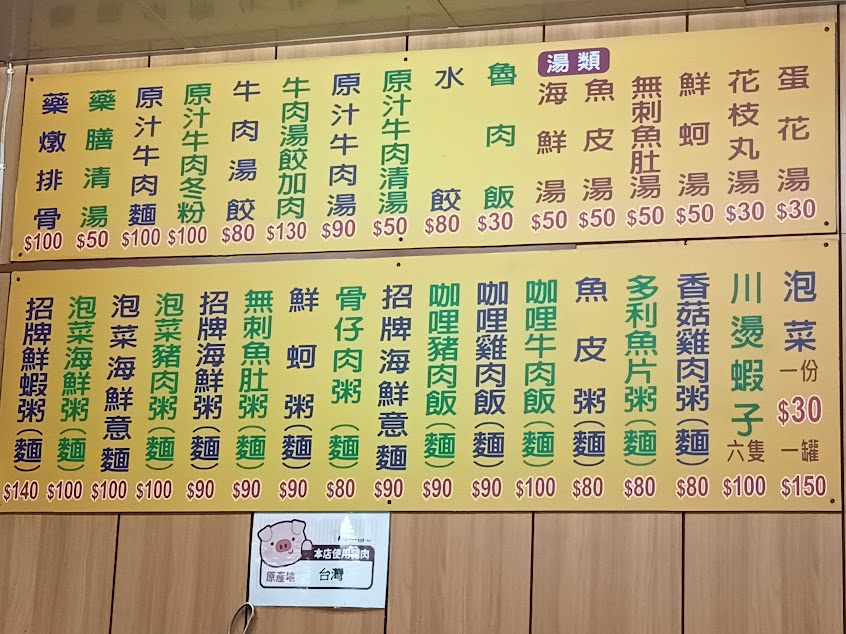 湯類
蛋花湯 $30
花枝丸湯 $30
鮮蚵湯 $50
無刺魚肚湯 $50
魚皮湯 $50
海鮮湯 $50
魯肉飯 $30
水餃 $80
原汁牛肉清湯 $50
原汁牛肉湯 $90
牛肉湯餃加肉 $130
牛肉湯餃 $80
原汁牛肉冬粉 $100
原汁牛肉麵 $100
藥膳清湯 $50
藥燉排骨 $100
泡菜 一份 $30 一罐 $150
川燙蝦子 六隻 $100
香菇雞肉粥(麵) $80
多利魚片粥(麵) $80
魚皮粥(麵) $80
咖哩牛肉飯(麵) $100
咖哩雞肉飯(麵) $90
咖哩豬肉飯(麵) $90
招牌海鮮意麵 $90
骨仔肉粥(麵) $80
鮮蚵粥(麵) $90
無刺魚肚粥(麵) $90
招牌海鮮粥(麵) $90
泡菜豬肉粥(麵) $100
泡菜海鮮意麵 $100
泡菜海鮮粥(麵) $100
招牌鮮蝦粥(麵) $140
本店使用豬肉
原產地 台灣